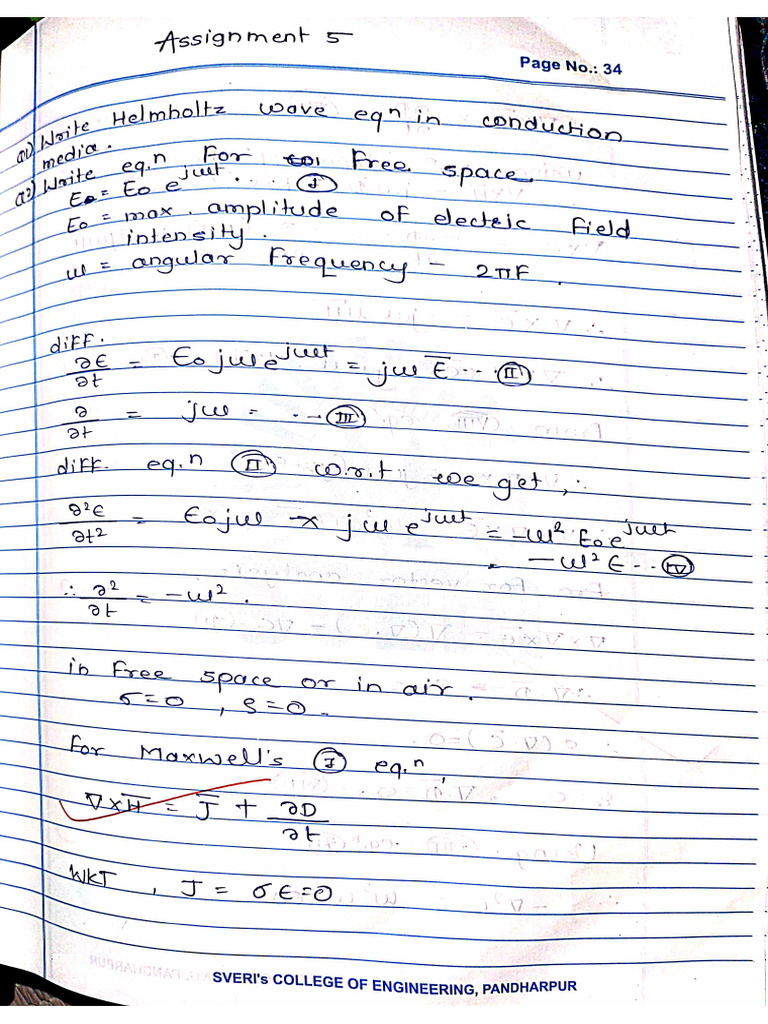 Assignment 5
Page No.: 34
Q1) Write Helmholtz wave eqn in conduction
media.
Q2) Write eq.n For Free space.
E = E0 e^jωt ... (I)
E0 = max. amplitude of electric field
intensity.
ω = angular Frequency - 2πF.
diff.
∂E/∂t = E0 jω e^jωt = jω E̅ ... (II)
∂/∂t = jω = ... (III)
diff. eq.n (II) w.r.t we get,
∂²E/∂t² = E0 jω × jω e^jωt = -ω² E0 e^jωt
= -ω² E ... (IV)
∴ ∂²/∂t = -ω².
in free space or in air.
σ=0 , ρ=0.
for Maxwell's (I) eq.n,
∇×H̅ = J̅ + ∂D/∂t
WKT , J = σE=0
SVERI's COLLEGE OF ENGINEERING, PANDHARPUR